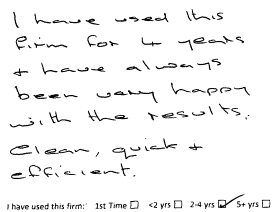 I have used this
firm for 4 years
+ have always
been very happy
with the results.
Clean, quick +
efficient.
I have used this firm: 1st Time ☐ <2 yrs ☐ 2-4 yrs ☑ 5+ yrs ☐